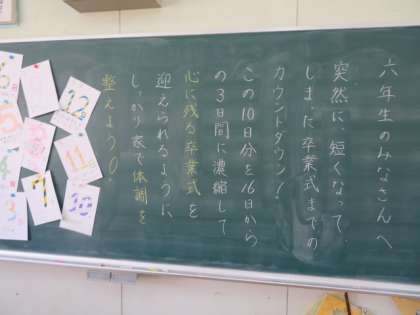 六年生のみなさんへ
突然に、短くなって
しまった卒業式までの
カウントダウン!
この10日分を16日から
の3日間に濃縮して
心に残る卒業式を
迎えられるように
しっかり家で体調を
整えよう○。
12
11
10
7